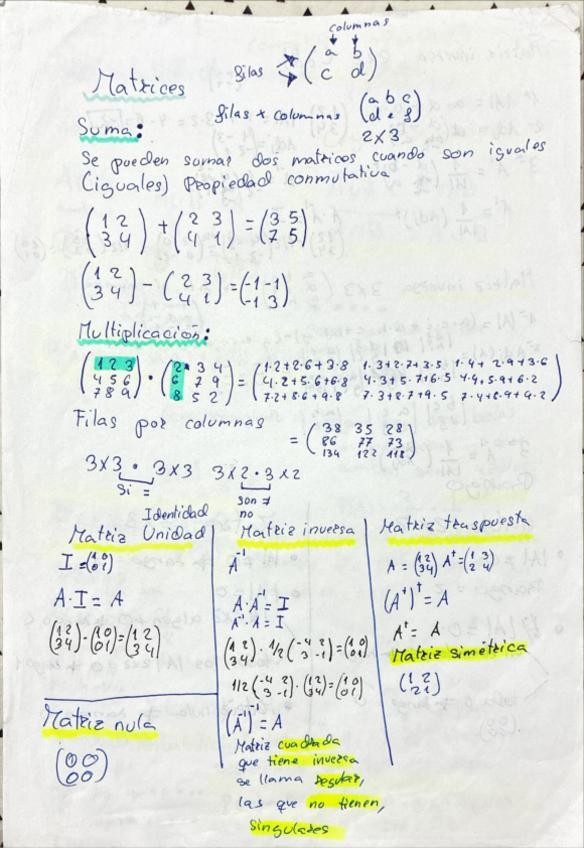 columnas
Matrices filas ( a b
c d )
filas x columnas ( a b c
d e f )
2x3
Suma:
Se pueden sumar dos matrices cuando son iguales
(iguales) Propiedad conmutativa
( 1 2
3 4 ) + ( 2 3
4 1 ) = ( 3 5
7 5 )
( 1 2
3 4 ) - ( 2 3
4 1 ) = ( -1 -1
-1 3 )
Multiplicación:
( 1 2 3
4 5 6
7 8 9 ) · ( 2 3 4
6 7 9
8 5 2 ) = ( 1·2+2·6+3·8 1·3+2·7+3·5 1·4+2·9+3·6
4·2+5·6+6·8 4·3+5·7+6·5 4·4+5·9+6·2
7·2+8·6+9·8 7·3+8·7+9·5 7·4+8·9+9·2 )
Filas por columnas
= ( 38 35 28
86 77 73
134 122 118 )
3x3 · 3x3 3x2 · 3x2
Si = son ≠
no
Identidad
Matriz Unidad
I = ( 1 0
0 1 )
A · I = A
( 1 2
3 4 ) · ( 1 0
0 1 ) = ( 1 2
3 4 )
Matriz nula
( 0 0
0 0 )
Matriz inversa
A⁻¹
A · A⁻¹ = I
A⁻¹ · A = I
( 1 2
3 4 ) · 1/2 ( -4 2
3 -1 ) = ( 1 0
0 1 )
1/2 ( -4 2
3 -1 ) · ( 1 2
3 4 ) = ( 1 0
0 1 )
(A⁻¹)⁻¹ = A
Matriz cuadrada
que tiene inversa
se llama regular,
las que no tienen,
singulares
Matriz traspuesta
A = ( 1 2
3 4 ) Aᵗ = ( 1 3
2 4 )
(Aᵗ)ᵗ = A
Aᵗ = A
Matriz simétrica
( 1 2
2 1 )